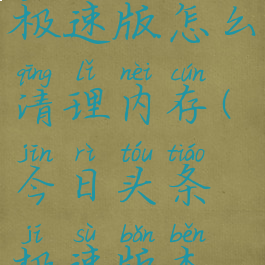 极速版怎么
qīng lǐ nèi cún
清理内存(
jīn rì tóu tiáo
今日头条
jí sù bǎn běn
极速版本